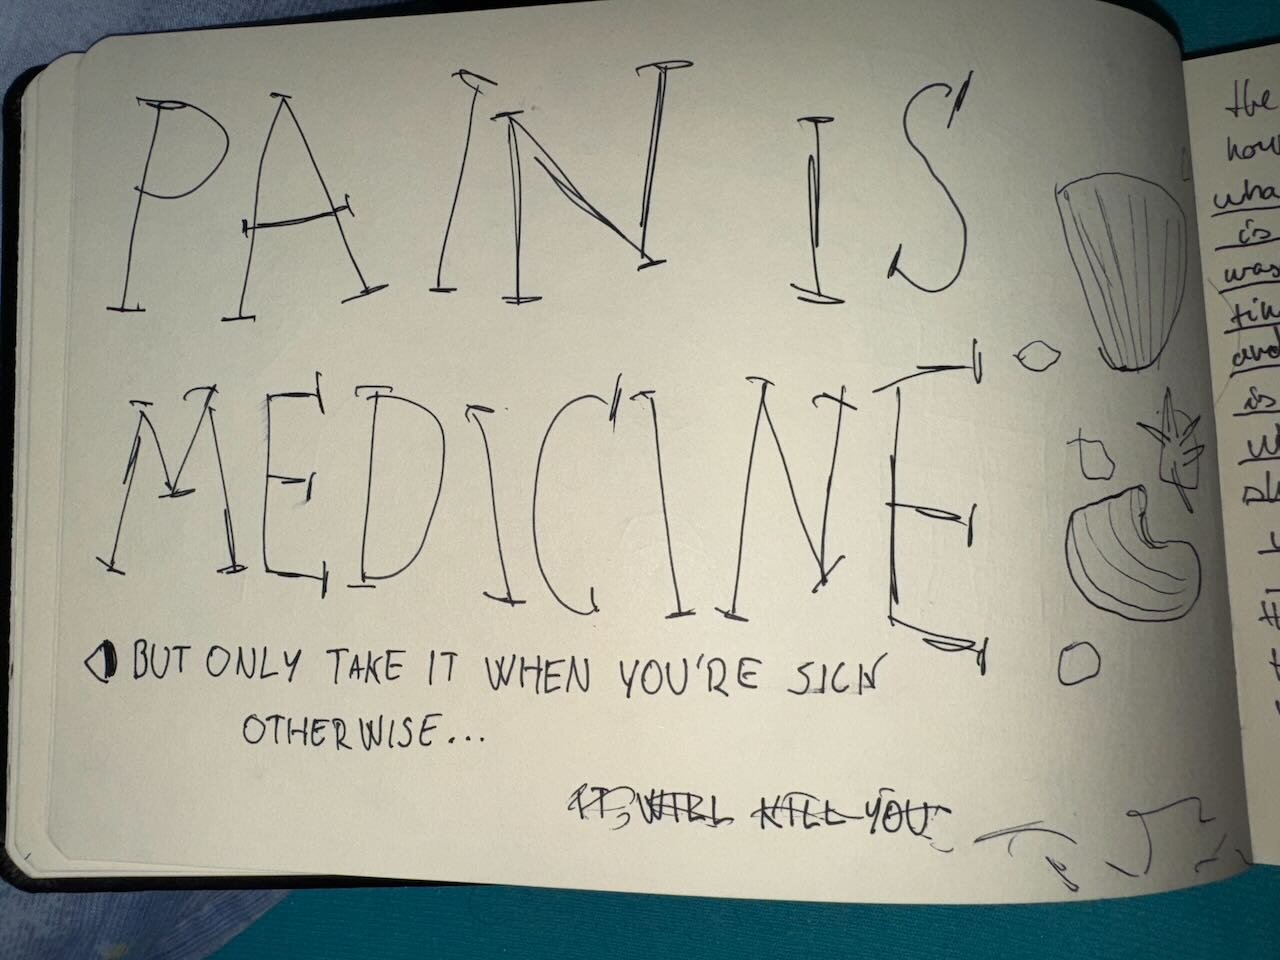 PAIN IS
MEDICINE
BUT ONLY TAKE IT WHEN YOU'RE SICK
OTHERWISE...
IT WILL KILL YOU
the
how
wha
is
was
tim
and
is